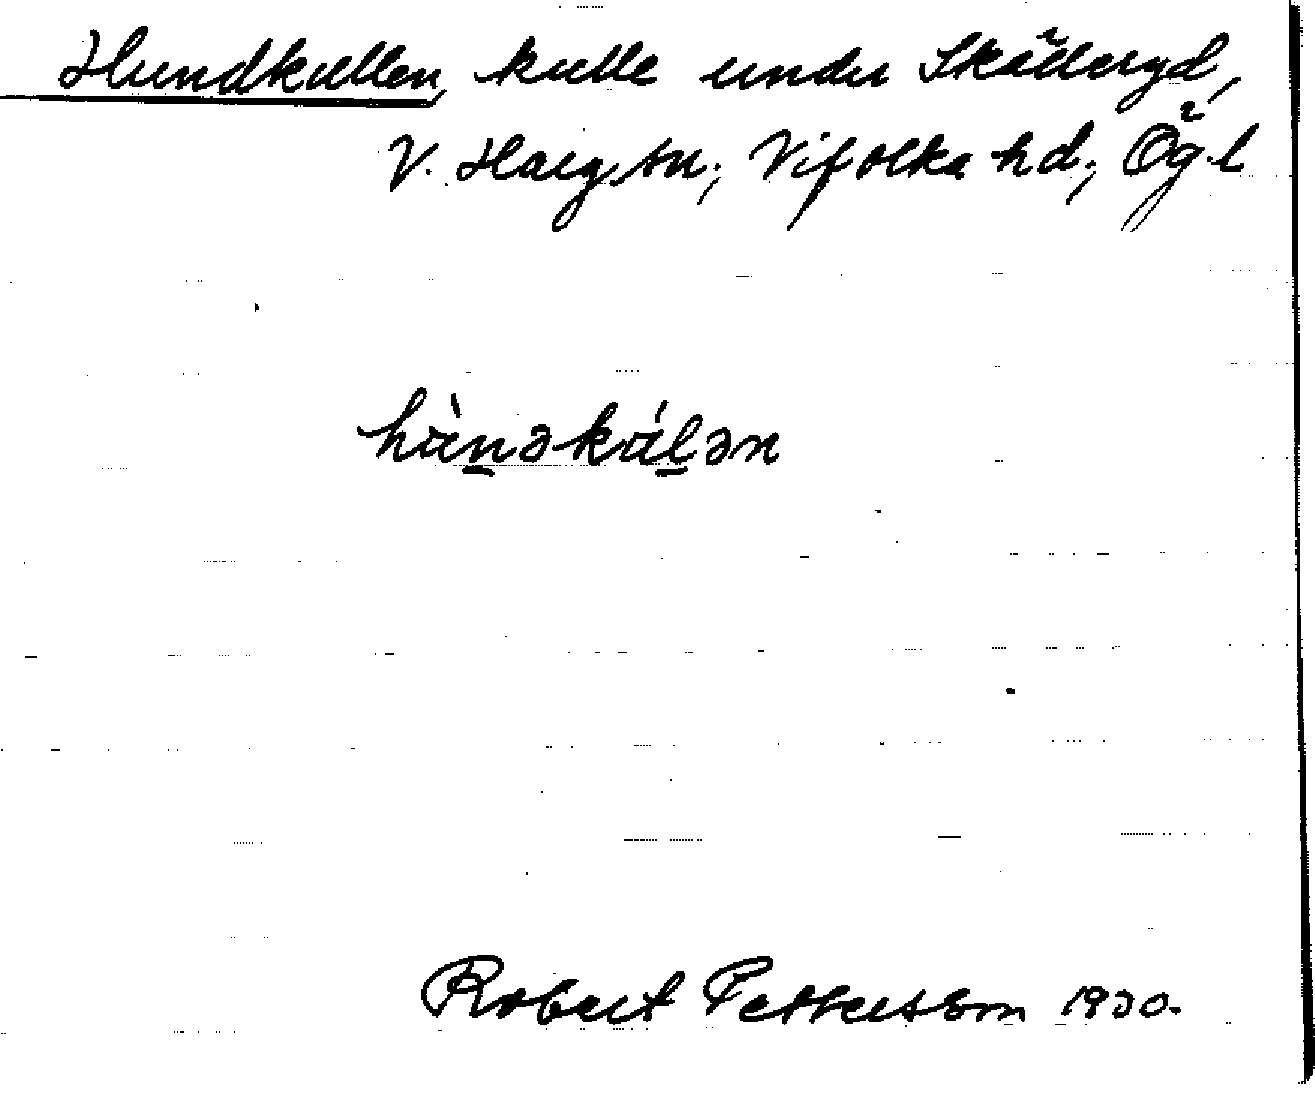 Hundkullen, kulle under Skäderyd,
V. Harg sn; Vifolka hd; Ög.l
hùnəkúlən
Robert Pettersson 1930.